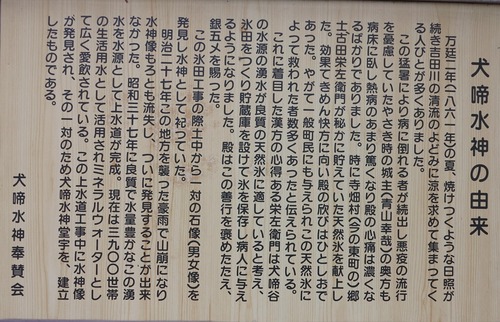 犬啼水神の由来
万延二年(一八六一年)の夏、焼けつくような日照が
続き吉田川の清流のよどみに涼を求めて集まつてく
る人びとが多くありました。
この猛暑により病に倒れる者が続出し悪疫の流行
を憂慮していたやさき時の城主(青山幸哉)の奥方も
病床に臥し熱病のあまり篤くなり殿の心痛は濃くな
るばかりでありました。時に寺畑村(今の東町の)郷
士古田栄左衛門が秘かに貯えていた天然氷を献上し
た。効果てきめん快方に向い殿の欣びはひとしおで
あつた。やがて一般町民にも与えられこの天然氷に
よつて救われた者数多くあつたと伝えられている。
これに着目した漢方の心得ある栄左衛門は犬啼谷
の水源の湧水が良質の天然氷に適していると考え、
氷田をつくり貯蔵庫を設けて氷を保存し病人に与え
るようになりました。殿はこの善行を褒めたたえ、
銀五メを賜つた。
この氷田工事の際土中から一対の石像(男女像)を
発見し水神として祀つていた。
明治二十七年この地方を襲つた豪雨で山崩になり
水神像もろとも流失し、ついに発見することが出来
なかつた。昭和三十七年に良質で水量豊かなこの湧
水を水源として上水道が完成。現在は三九〇〇世帯
の生活用水として活用されミネラルウォーターとし
て広く愛飲されている。この上水道工事中に水神像
が発見され、その一対のため犬啼水神堂宇を、建立
したものである。
犬啼水神奉賛会